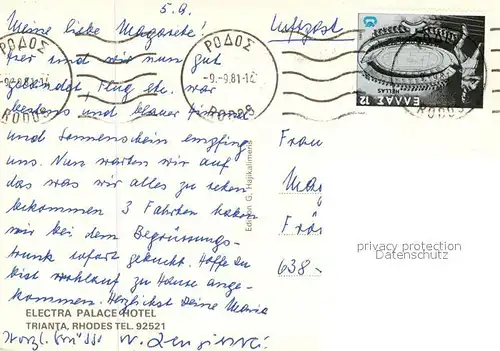 5.9.
Meine liebe Magarete!
Hier sind wir nun gut
gelandet, Flug etc. war
bestens und blauer Himmel
und Sonnenschein empfing
uns. Nun warten wir auf
das was wir alles zu sehen
bekommen 3 Fahrten haben
wir bei dem Begrüssungs-
trunk sofort gebucht. Hoffe Du
bist wohlauf zu Hause ange-
kommen. Herzlichst Deine Maria
ELECTRA PALACE HOTEL
TRIANTA, RHODES TEL. 92521
Herzl. Grüsse
Luftpost
ΡΟΔΟΣ
-9.-9.81-14
RODOS
ΡΟΔΟΣ
-9.-9.81-14
RODOS
ΕΛΛΑΣ 12
HELLAS
RODOS
Edition G. Hajikalimeris
Frau
Mar
Frö
638-
privacy protection
Datenschutz